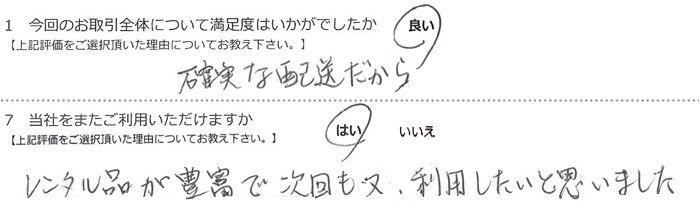 1 今回のお取引全体について満足度はいかがでしたか 良い
【上記評価をご選択頂いた理由についてお教え下さい。】
確実な配送だから
7 当社をまたご利用いただけますか はい いいえ
【上記評価をご選択頂いた理由についてお教え下さい。】
レンタル品が豊富で次回も又、利用したいと思いました